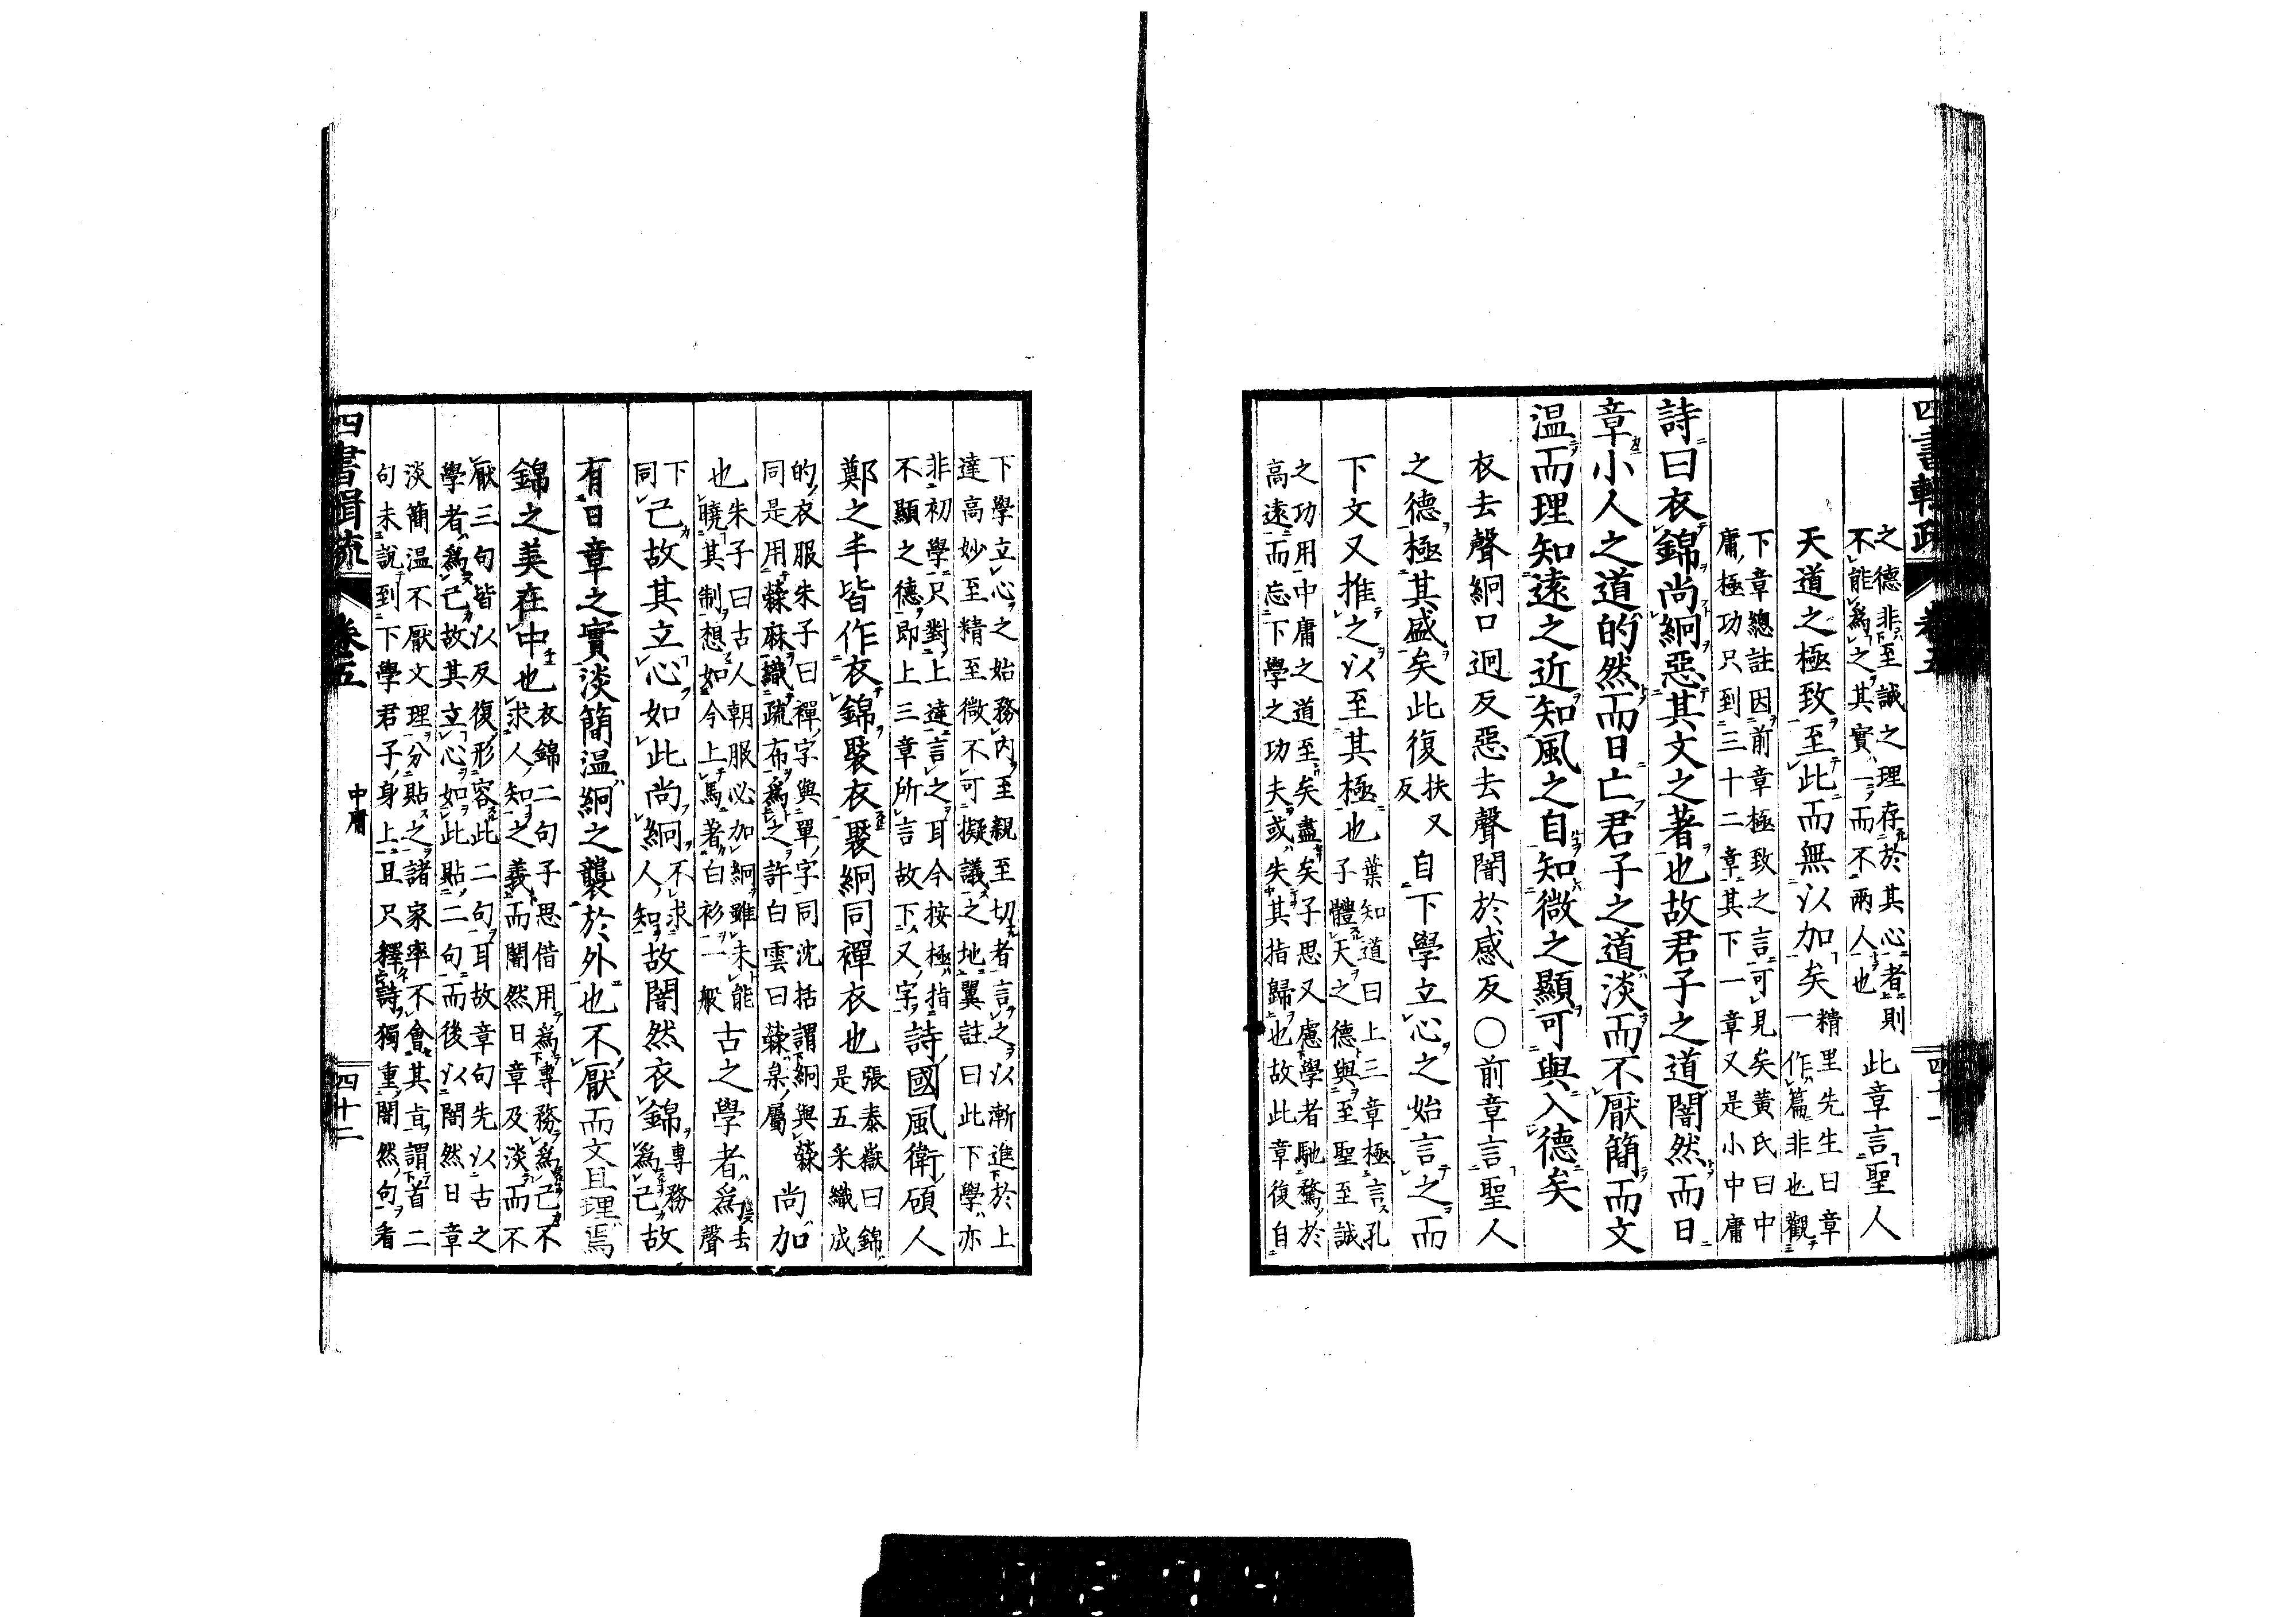 四書輯疏
卷五
四十一
之德非至誠之理存於其心者則
不能爲之其實一而不兩人也
此章言聖人
天道之極致至此而無以加矣
精里先生曰章
一作篇非也觀
下章總註因前章極致之言可見矣黃氏曰中
庸極功只到三十二章其下一章又是小中庸
詩曰衣錦尚絅惡其文之著也故君子之道闇然而日
章小人之道的然而日亡君子之道淡而不厭簡而文
温而理知遠之近知風之自知微之顯可與入德矣
衣去聲絅口迥反惡去聲闇於感反○前章言聖人
之德極其盛矣此復
扶又
反
自下學立心之始言之而
下文又推之以至其極也
葉知道曰上三章極言孔
子體天之德與至聖至誠
之功用中庸之道至矣盡矣子思又慮學者馳騖於
高遠而忘下學之功夫或失其指歸也故此章復自
下學立心之始務內至親至切者言之以漸進於上
達高妙至精至微不可擬議之地翼註曰此下學亦
非初學只對上達言之耳今按極指
不顯之德即上三章所言故下又字
詩國風衛碩人
鄭之丰皆作衣錦褧衣褧絅同襌衣也
張泰嶽曰錦
是五采織成
的衣服朱子曰襌字與單字同沈括謂絅與䔛
同是用䔛麻織疏布爲之許白雲曰䔛枲屬
尚加
也
朱子曰古人朝服必加絅雖未能
曉其制想如今上馬著白衫一般
古之學者爲
去
聲
下
同
己故其立心如此尚絅
不求
人知
故闇然衣錦
專務
爲己
故
有日章之實淡簡温絅之襲於外也不厭而文且理焉
錦之美在中也
衣錦二句子思借用爲專務爲己不
求人知之義而闇然日章及淡而不
厭三句皆以反復形容此二句耳故章句先以古之
學者爲己故其立心如此貼二句而後以闇然日章
淡簡温不厭文理分貼之諸家率不會其旨謂首二
句未說到下學君子身上且只釋詩獨重闇然句看
四書輯疏
卷五
中庸
四十二